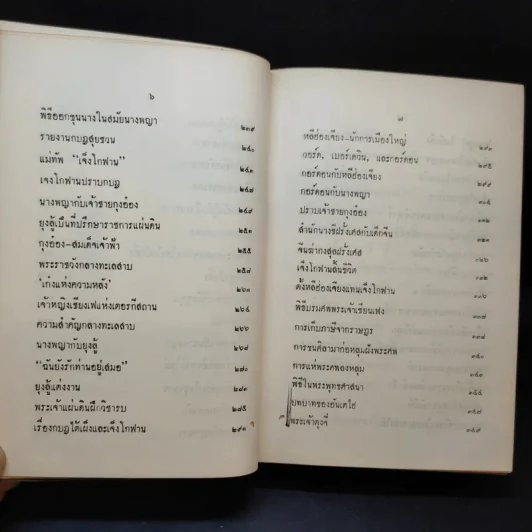 ๖
พิธีออกขุนนางในสมัยนางพญา ๒๓๙
รายงานกบฏสุยชวน ๒๔๐
แม่ทัพ “เจ็งโกฟาน” ๒๔๓
เจงโกฟานปราบกบฏ ๒๔๗
นางพญากับเจ้าชายกุงอ๋อง ๒๔๙
ยุงลู้เป็นที่ปรึกษาราชการแผ่นดิน ๒๕๑
กุงอ๋อง-สมเด็จเจ้าฟ้า ๒๕๔
พระราชวังกลางทะเลสาบ ๒๕๙
‘เก๋งแห่งความหลัง’ ๒๖๓
เจ้าหญิงเชียงเฟแห่งเตอรกีสถาน ๒๖๔
ความสำคัญกลางทะเลสาบ ๒๖๖
นางพญากับยุงลู้ ๒๖๙
“ฉันยังรักท่านอยู่เสมอ” ๒๗๓
ยุงลู้แต่งงาน
พระเจ้าแผ่นดินฝึกวิชารบ ๒๘๕
เรื่องกบฏไต้เผ็งและเจ็งโกฟาน ๒๙๑
๗
หลีฮ่องเจียง-นักการเมืองใหญ่ ๒๙๐
วอร์ด, เบอร์เดวิน, และกอร์ดอน ๒๙๕
กอร์ดอนกับหลีฮ่องเจียง ๒๙๙
กอร์ดอนกับนางพญา
ปราบเจ้าชายกุงอ๋อง ๓๑๒
สำนักนางชีฝรั่งเศสกับเด็กจีน ๓๒๑
จีนฆ่ากงสุลฝรั่งเศส
เจ็งโกฟานสิ้นชีวิต
ตั้งหลีฮ่องเจียงแทนเจ็งโกฟาน
พิธีบรมศพพระเจ้าเซียนเฟง
การเก็บภาษีจากราษฎร
การขนศิลามาก่อหลุมฝังพระศพ
การแห่พระศพลงหลุม
พิธีในพระพุทธศาสนา
บทบาทของอันเตไฮ
พระเจ้าตุงจี่